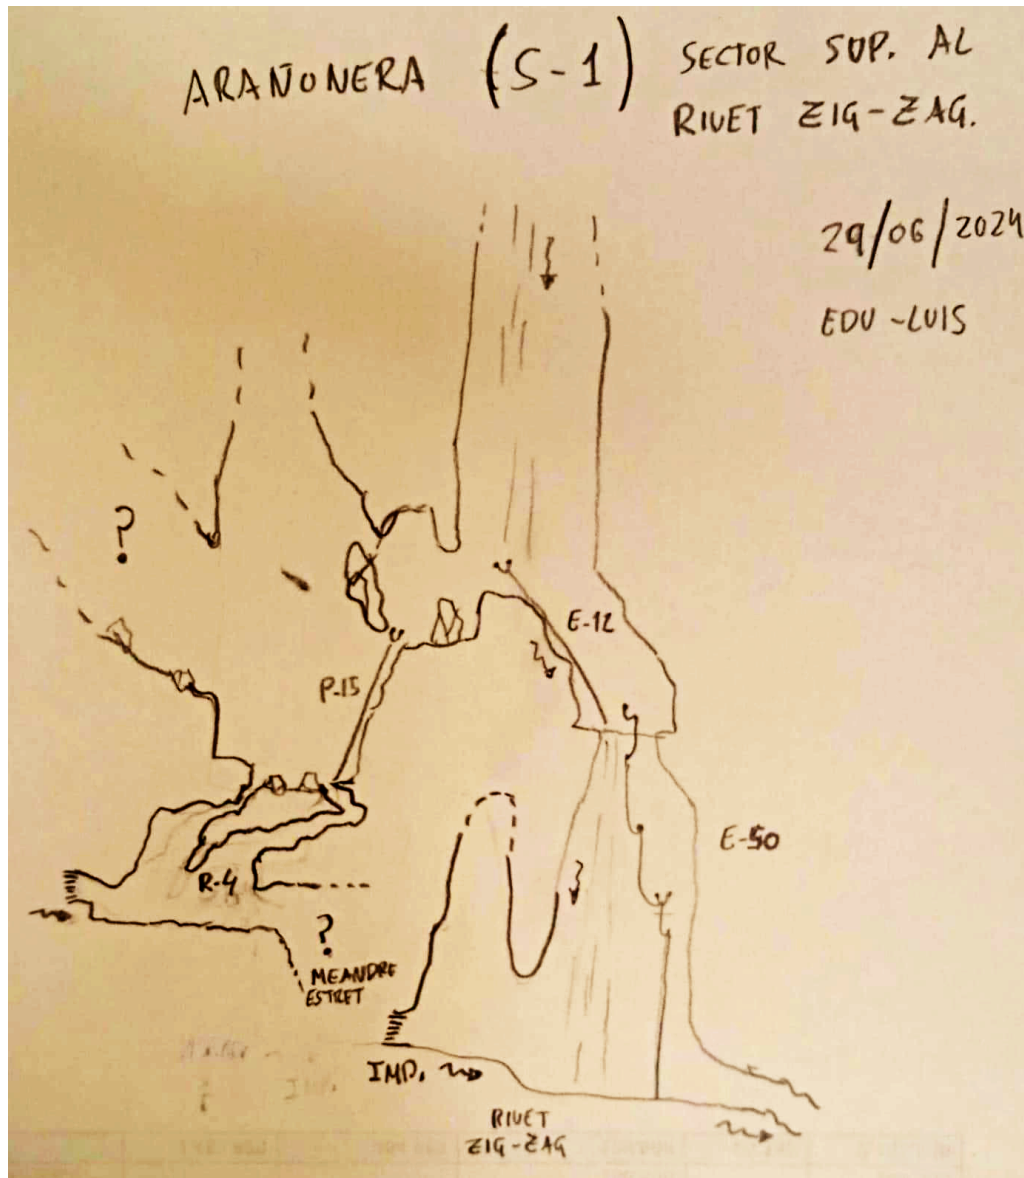 ARAÑONERA (S-1) SECTOR SUP. AL
RIVET ZIG-ZAG.
29/06/2024
EDU-LUIS
?
E-12
P-15
E-50
R-4
?
MEANDRE
ESTRET
IMP.
RIVET
ZIG-ZAG